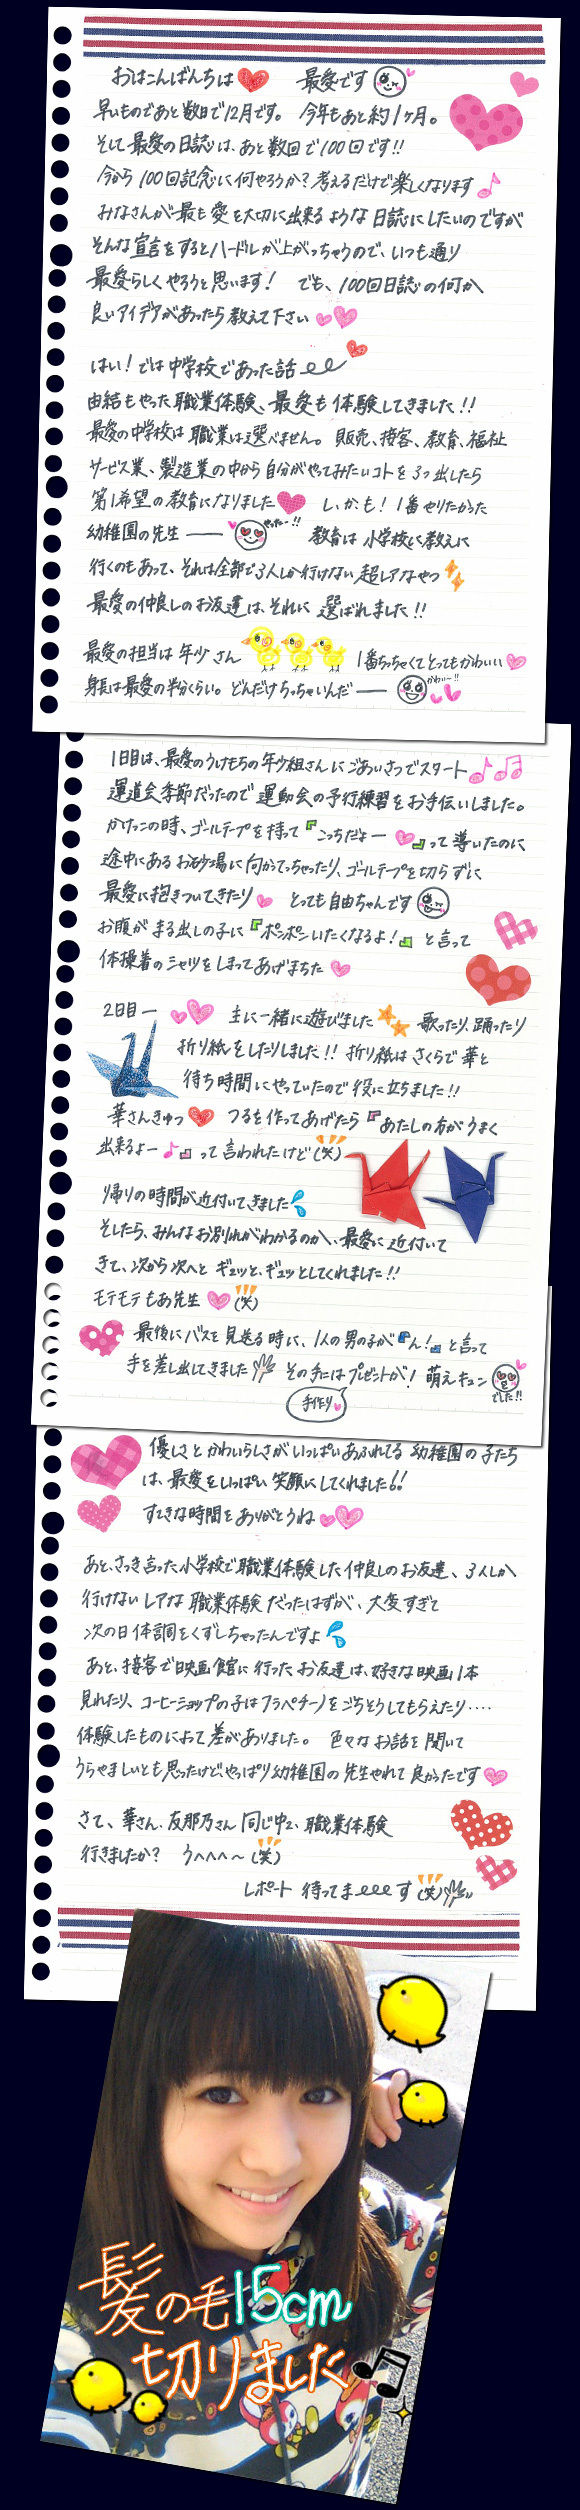 おはこんばんちは 最愛です
早いものであと数日で12月です。 今年もあと約1ヶ月。
そして最愛の日誌は、あと数回で100回です!!
今から100回記念に何やろうか?考えるだけで楽しくなります
みなさんが最も愛を大切に出来るような日誌にしたいのですが
そんな宣言をするとハードルが上がっちゃうので、いつも通り
最愛らしくやろうと思います! でも、100回日誌の何か
良いアイデアがあったら教えて下さい
はい!では中学校であった話
由結もやった職業体験、最愛も体験してきました!!
最愛の中学校は職業は選べません。 販売、接客、教育、福祉
サービス業、製造業の中から自分がやってみたいコトを3つ出したら
第1希望の教育になりました しかも! 1番やりたかった
幼稚園の先生ー やったー!! 教育は小学校に教えに
行くのもあって、それは全部で3人しか行けない超レアなやつ
最愛の仲良しのお友達は、それに選ばれました!!
最愛の担当は年少さん 1番ちっちゃくてとってもかわいい
身長は最愛の半分くらい。どんだけちっちゃいんだー かわいー!!
1日目は、最愛のうけもちの年少組さんにごあいさつでスタート
運道会季節だったので運動会の予行練習をお手伝いしました。
かけっこの時、ゴールテープを持って『こっちだよー』って導いたのに
途中にあるお砂場に向かってっちゃったり、ゴールテープを切らずに
最愛に抱きついてきたり とっても自由ちゃんです
お腹がまる出しの子に『ポンポンいたくなるよ!』と言って
体操着のシャツをしまってあげまちた
2日目ー 主に一緒に遊びました 歌ったり、踊ったり
折り紙をしたりしました!! 折り紙はさくらで華と
待ち時間にやっていたので役に立ちました!!
華さんきゅっ つるを作ってあげたら『あたしの方がうまく
出来るよー』って言われたけど(笑)
帰りの時間が近付いてきました
そしたら、みんなお別れがわかるのか、最愛に近付いて
きて、次から次へとギュッと、ギュッとしてくれました!!
モテモテもあ先生 (笑)
最後にバスを見送る時に、1人の男の子が『ん!』と言って
手を差し出してきました その手にはプレゼントが! 萌えキュン
でした!!
手作り
優しさとかわいらしさがいっぱいあふれてる幼稚園の子たち
は、最愛をいっぱい笑顔にしてくれました!!
すてきな時間をありがとうね
あと、さっき言った小学校で職業体験した仲良しのお友達、3人しか
行けないレアな職業体験だったはずが、大変すぎて
次の日体調をくずしちゃったんですよ
あと、接客で映画館に行ったお友達は、好きな映画1本
見れたり、コーヒーショップの子はフラペチーノをごちそうしてもらえたり‥‥
体験したものによって差がありました。 色々なお話を聞いて
うらやましいとも思ったけどやっぱり幼稚園の先生やれて良かったです
さて、華さん、友那乃さん同じ中2、職業体験
行きましたか? うへへへ〜(笑)
レポート待ってまーーーす(笑)
髪の毛15cm
切りました